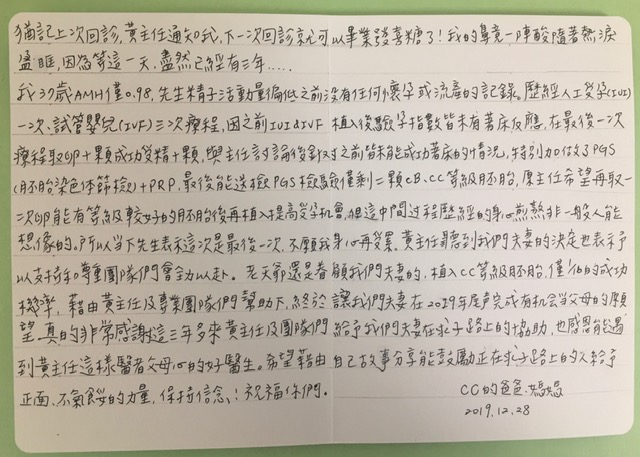 猶記上次回診,黃主任通知我,下一次回診就可以畢業發喜糖了!我的鼻竟一陣酸隨著熱淚
盈眶,因為等這一天,盡然已經有三年.....
我37歲AMH僅0.98,先生精子活動量偏低之前沒有任何懷孕或流產的記錄。歷經人工受孕(IUI)
一次、試管嬰兒(IVF)三次療程,因之前IUI&IVF植入後驗孕指數皆未有著床反應,在最後一次
療程取卵+顆成功受精+顆,與主任討論後針對之前皆未能成功著床的情況,特別加做了PGS
(胚胎染色体篩檢)+PRP,最後能送檢PGS檢驗僅剩一顆cB.CC等級胚胎,原主任希望再取一
二次卵能有等級較好的胚胎後再植入提高受孕机會,但這中間过程歷經的身心煎熬非一般人能
想像的。所以當下先生表示這次是最後一次,不願我身心再受累。黃主任聽到我們夫妻的決定也表示予
以支持和尊重團隊們會全力以赴。老天爺還是眷顧我們夫妻的,植入CC等級胚胎,僅1/10的成功
機率,藉由黃主任及專業團隊們幫助下,終於讓我們夫妻在2019年尾声完成有机会当父母的願
望,真的非常感謝這三年多來黃主任及團隊們給予我們夫妻在求子路上的協助,也感恩能遇
到黃主任這樣醫者父母心的好醫生。希望藉由自己故事分享能鼓勵正在求子路上的人給予
正面、不氣餒的力量,保持信念!祝福你們。
CC的爸爸.媽媽
2019.12.28